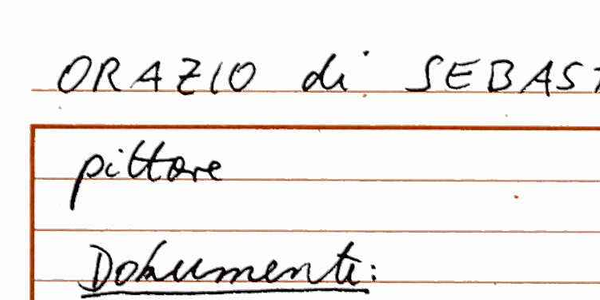 ORAZIO di SEBAST
pittore
Dokumente: